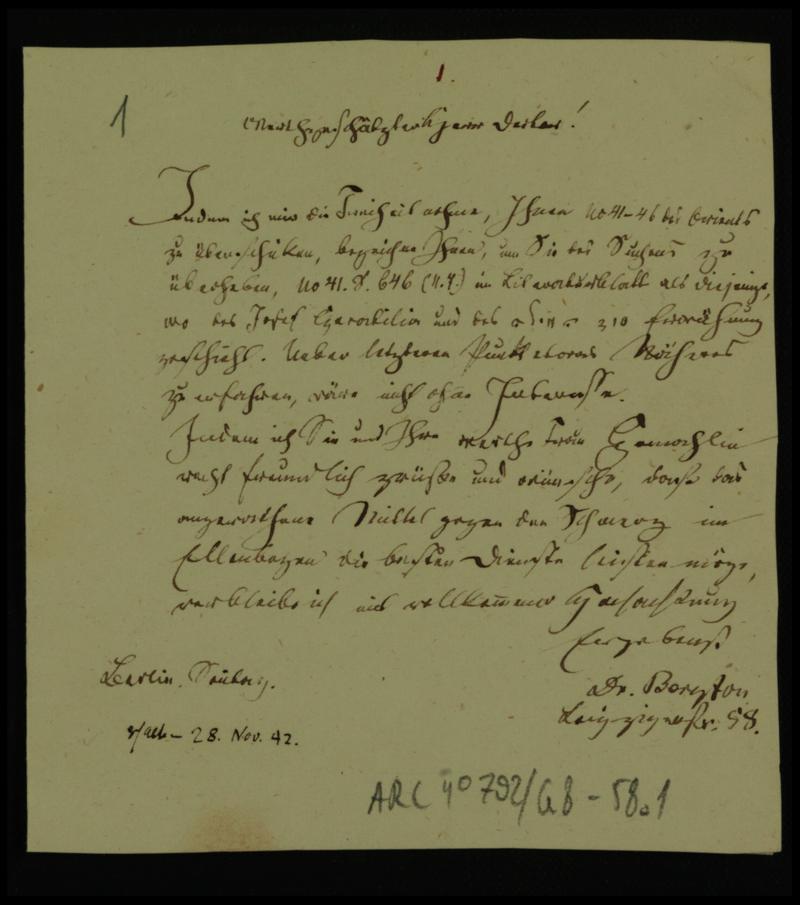 1.
1
Werthgeschätzter Herr Doctor!
Indem ich mir die Freiheit nehme, Ihnen No 41-46 des Orients
zu überschicken, bezeichne Ihnen, um Sie des Suchens zu
überheben, No 41. S. 646 (N.4.) im Literaturblatt als diejenige,
wo des Josef und des Erwähnung
geschieht. Ueber letzteren Punkt etwas Näheres
zu erfahren, wäre nicht ohne Interesse.
Indem ich Sie und Ihre werthe Frau Gemahlin
recht freundlich grüße und wünsche, daß das
angerathene Mittel gegen den Schmerz im
Ellenbogen die besten Dienste leisten möge,
verbleibe ich mit vollkommener Hochachtung
Ergebenst
Berlin. Sonntag.
Dr. Bergson
Leipzigerstr. 58.
28. Nov. 42.
ARC 4o 792/G8-58.1